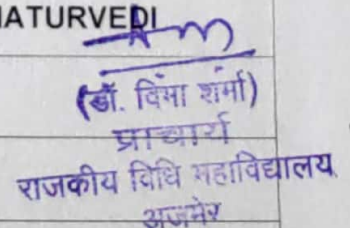 HATURVEDI
(डॉ. विभा शर्मा)
प्राचार्य
राजकीय विधि महाविद्यालय
अजमेर